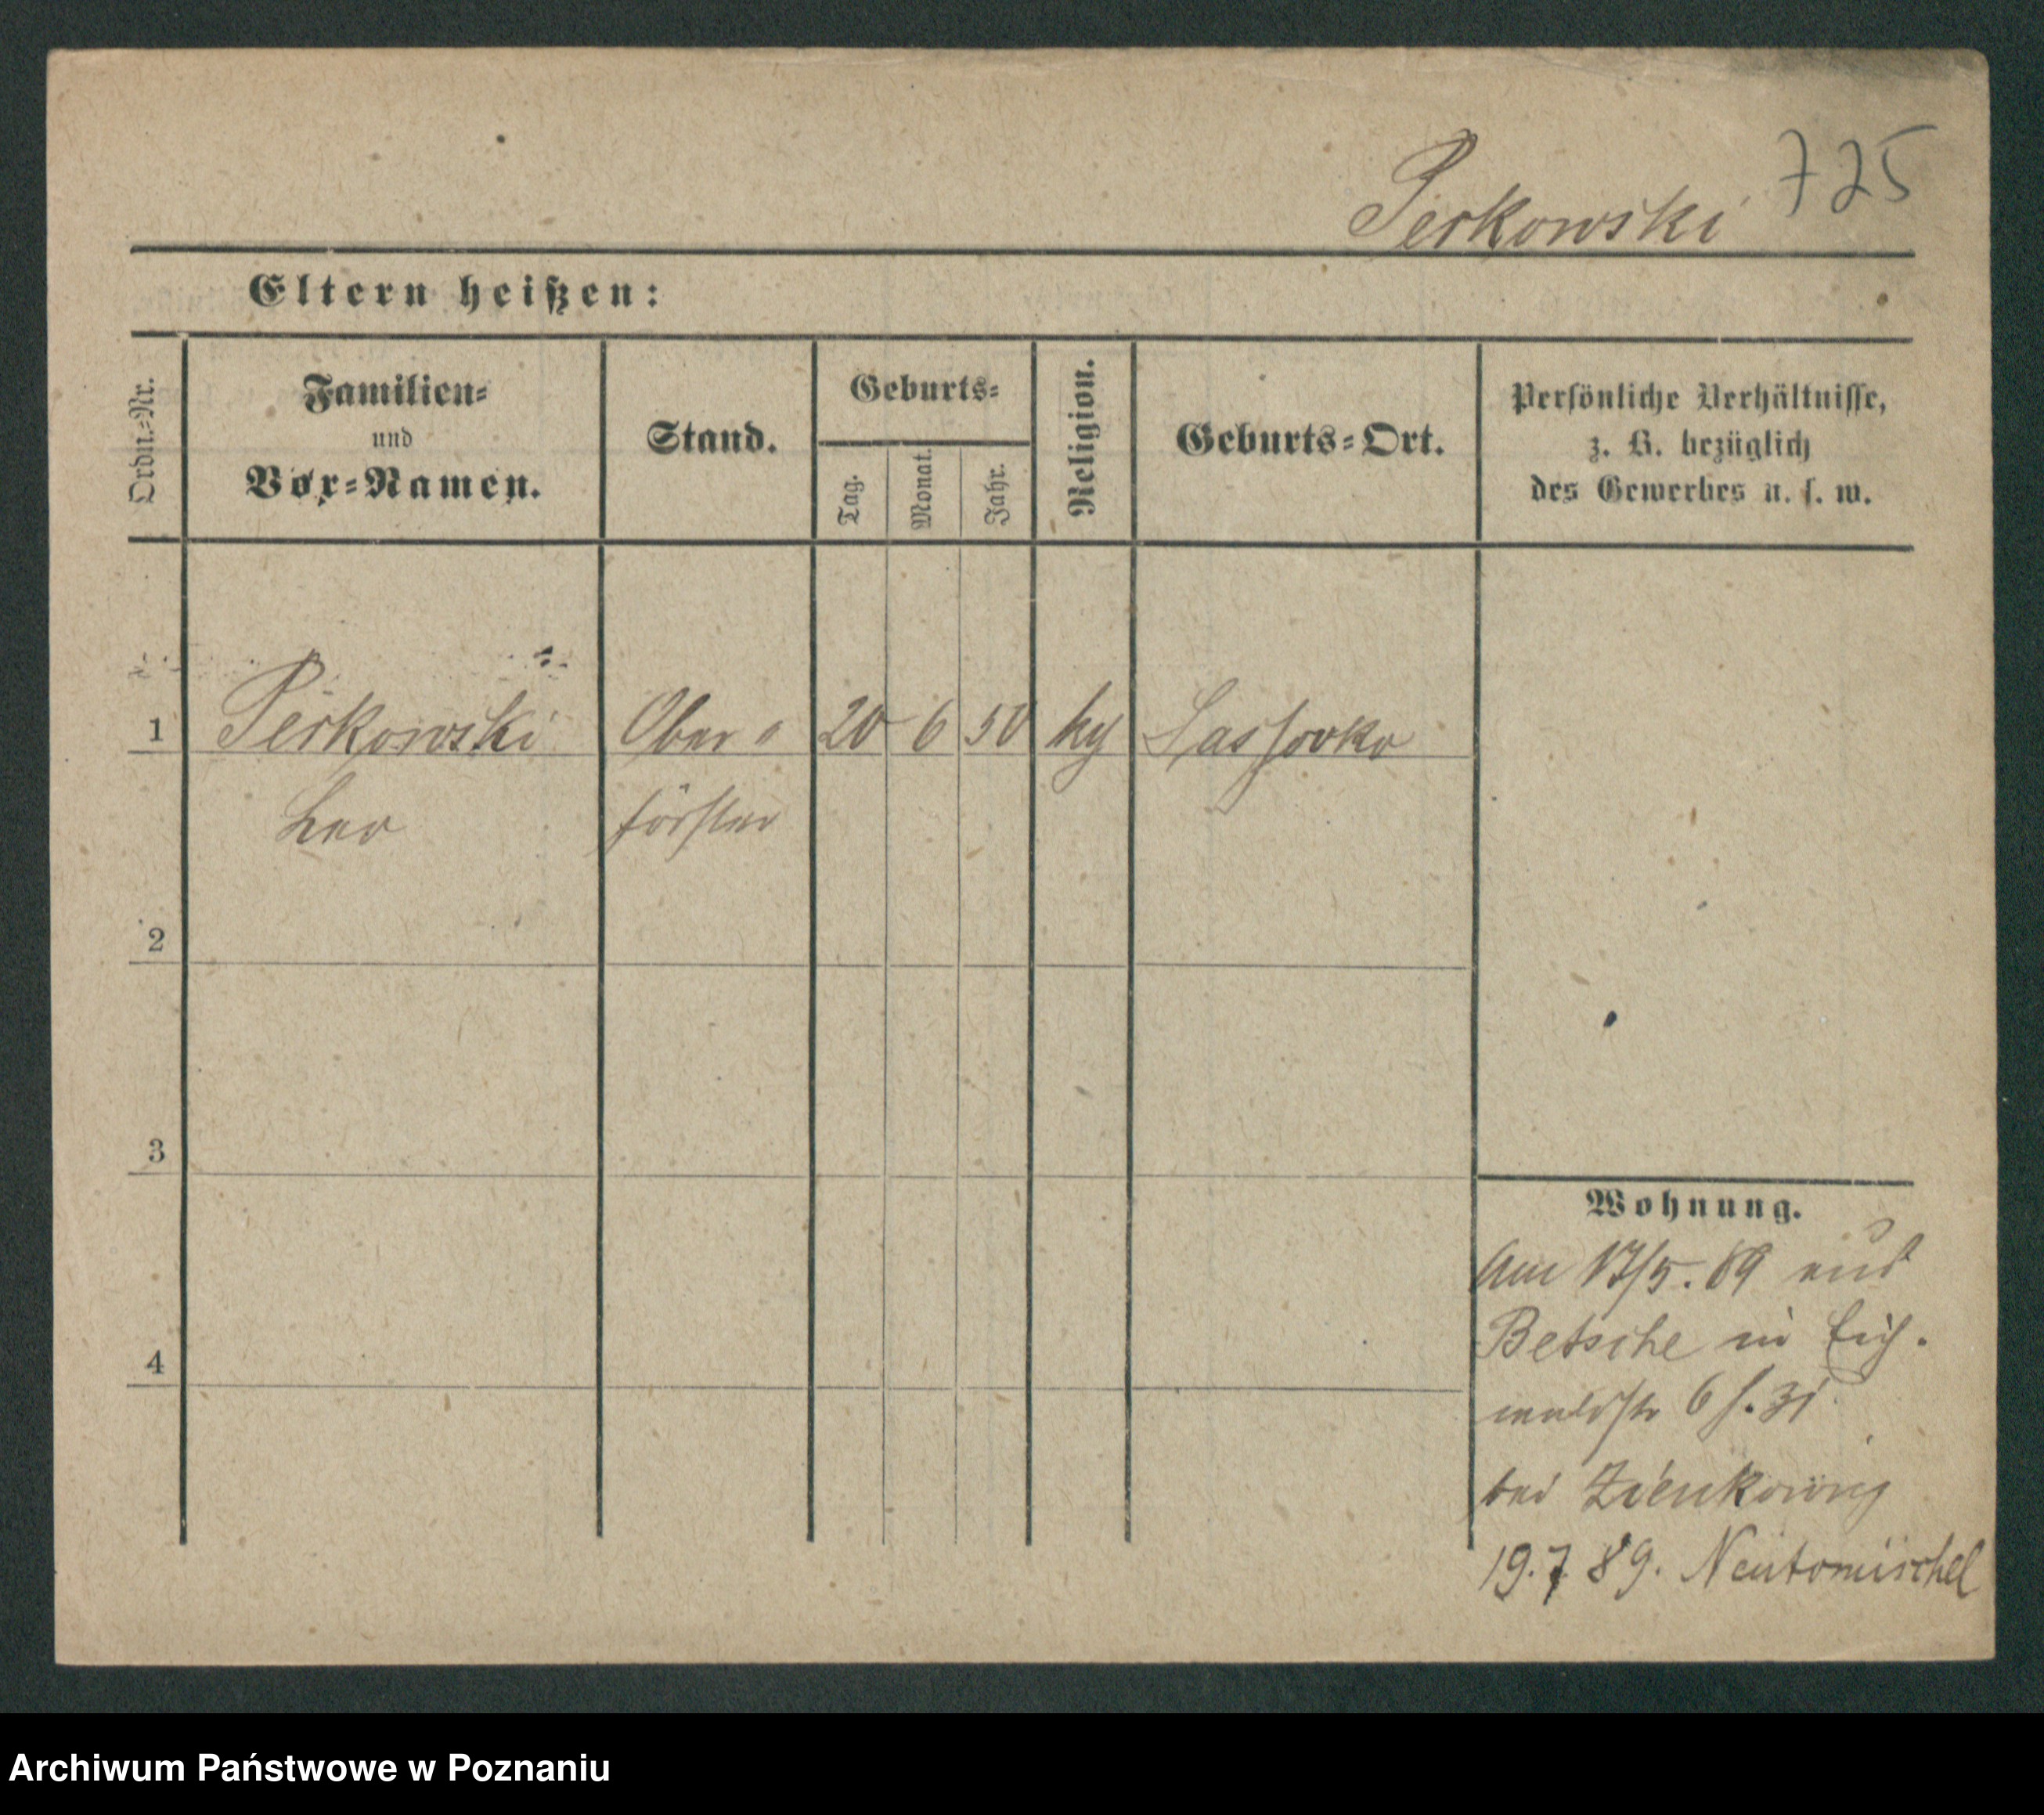 725
Perkowski
Eltern heißen:
Ordn.-Nr.
Familien-
und
Vor-Namen.
Stand.
Geburts-
Tag.
Monat.
Jahr.
Religion.
Geburts-Ort.
Persönliche Verhältnisse,
z. B. bezüglich
des Gewerbes u. s. w.
1 Perkowski Ober- 20 6 50
Leo förster
2
3
4
Wohnung.
Am 17/5. 89 aus
Betsche in Eich.
waldstr 6
bei
19.7.89. Neutomischel
Archiwum Państwowe w Poznaniu